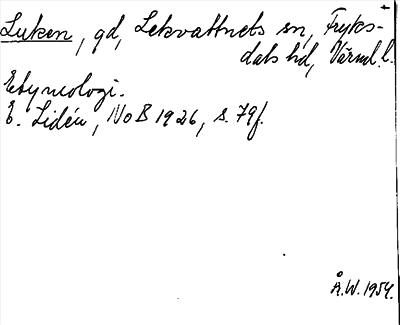 Luken, gd, Lekvattnets sn, Fryks-
dals hd, Värml. l.
Etymologi.
E. Lidén, NoB 1926, s. 79f.
Å.W. 1954.